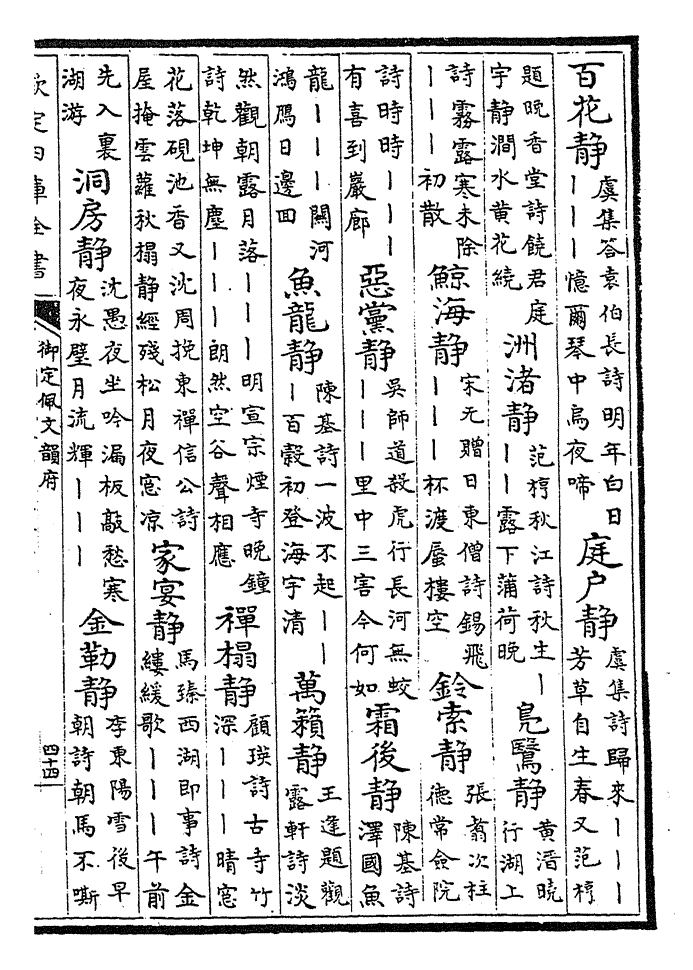 百花静 虞集答袁伯長詩明年白日｜｜｜憶爾琴中烏夜啼 庭户静 虞集詩歸來｜｜｜芳草自生春又范梈
題晚香堂詩饒君庭宇静澗水黄花繞 洲渚静 范梈秋江詩秋生｜｜｜露下蒲荷晚 鳧鷖静 黄溍曉行湖上
詩霧露寒未除｜｜｜初散 鯨海静 宋元贈日東僧詩錫飛｜｜｜杯渡蜃樓空 鈴索静 張翥次柱德常僉院
詩時時｜｜｜有喜到巖廊 惡黨静 吴師道殺虎行長河無蛟｜｜｜里中三害今何如 霜後静 陳基詩澤國魚
龍｜｜｜關河鴻鴈日邊回 魚龍静 陳基詩一波不起｜｜｜百穀初登海宇清 萬籟静 王逢題觀露軒詩淡
然觀朝露月落｜｜｜明宣宗煙寺晚鐘詩乾坤無塵｜｜｜朗然空谷聲相應 禪榻静 顧瑛詩古寺竹深｜｜｜晴窓
花落硯池香又沈周挽東禪信公詩屋掩雲蘿秋榻静經殘松月夜窓凉 家宴静 馬臻西湖即事詩金縷緩歌｜｜｜午前
先入裏湖游 洞房静 沈愚夜坐吟漏板敲愁寒夜永璧月流輝｜｜｜ 金勒静 李東陽雪後早朝詩朝馬不嘶
欽定四庫全書
御定佩文韻府
四十四